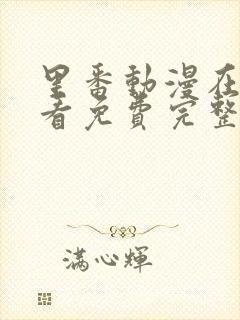 里番動漫在
看免費完整
满心輝